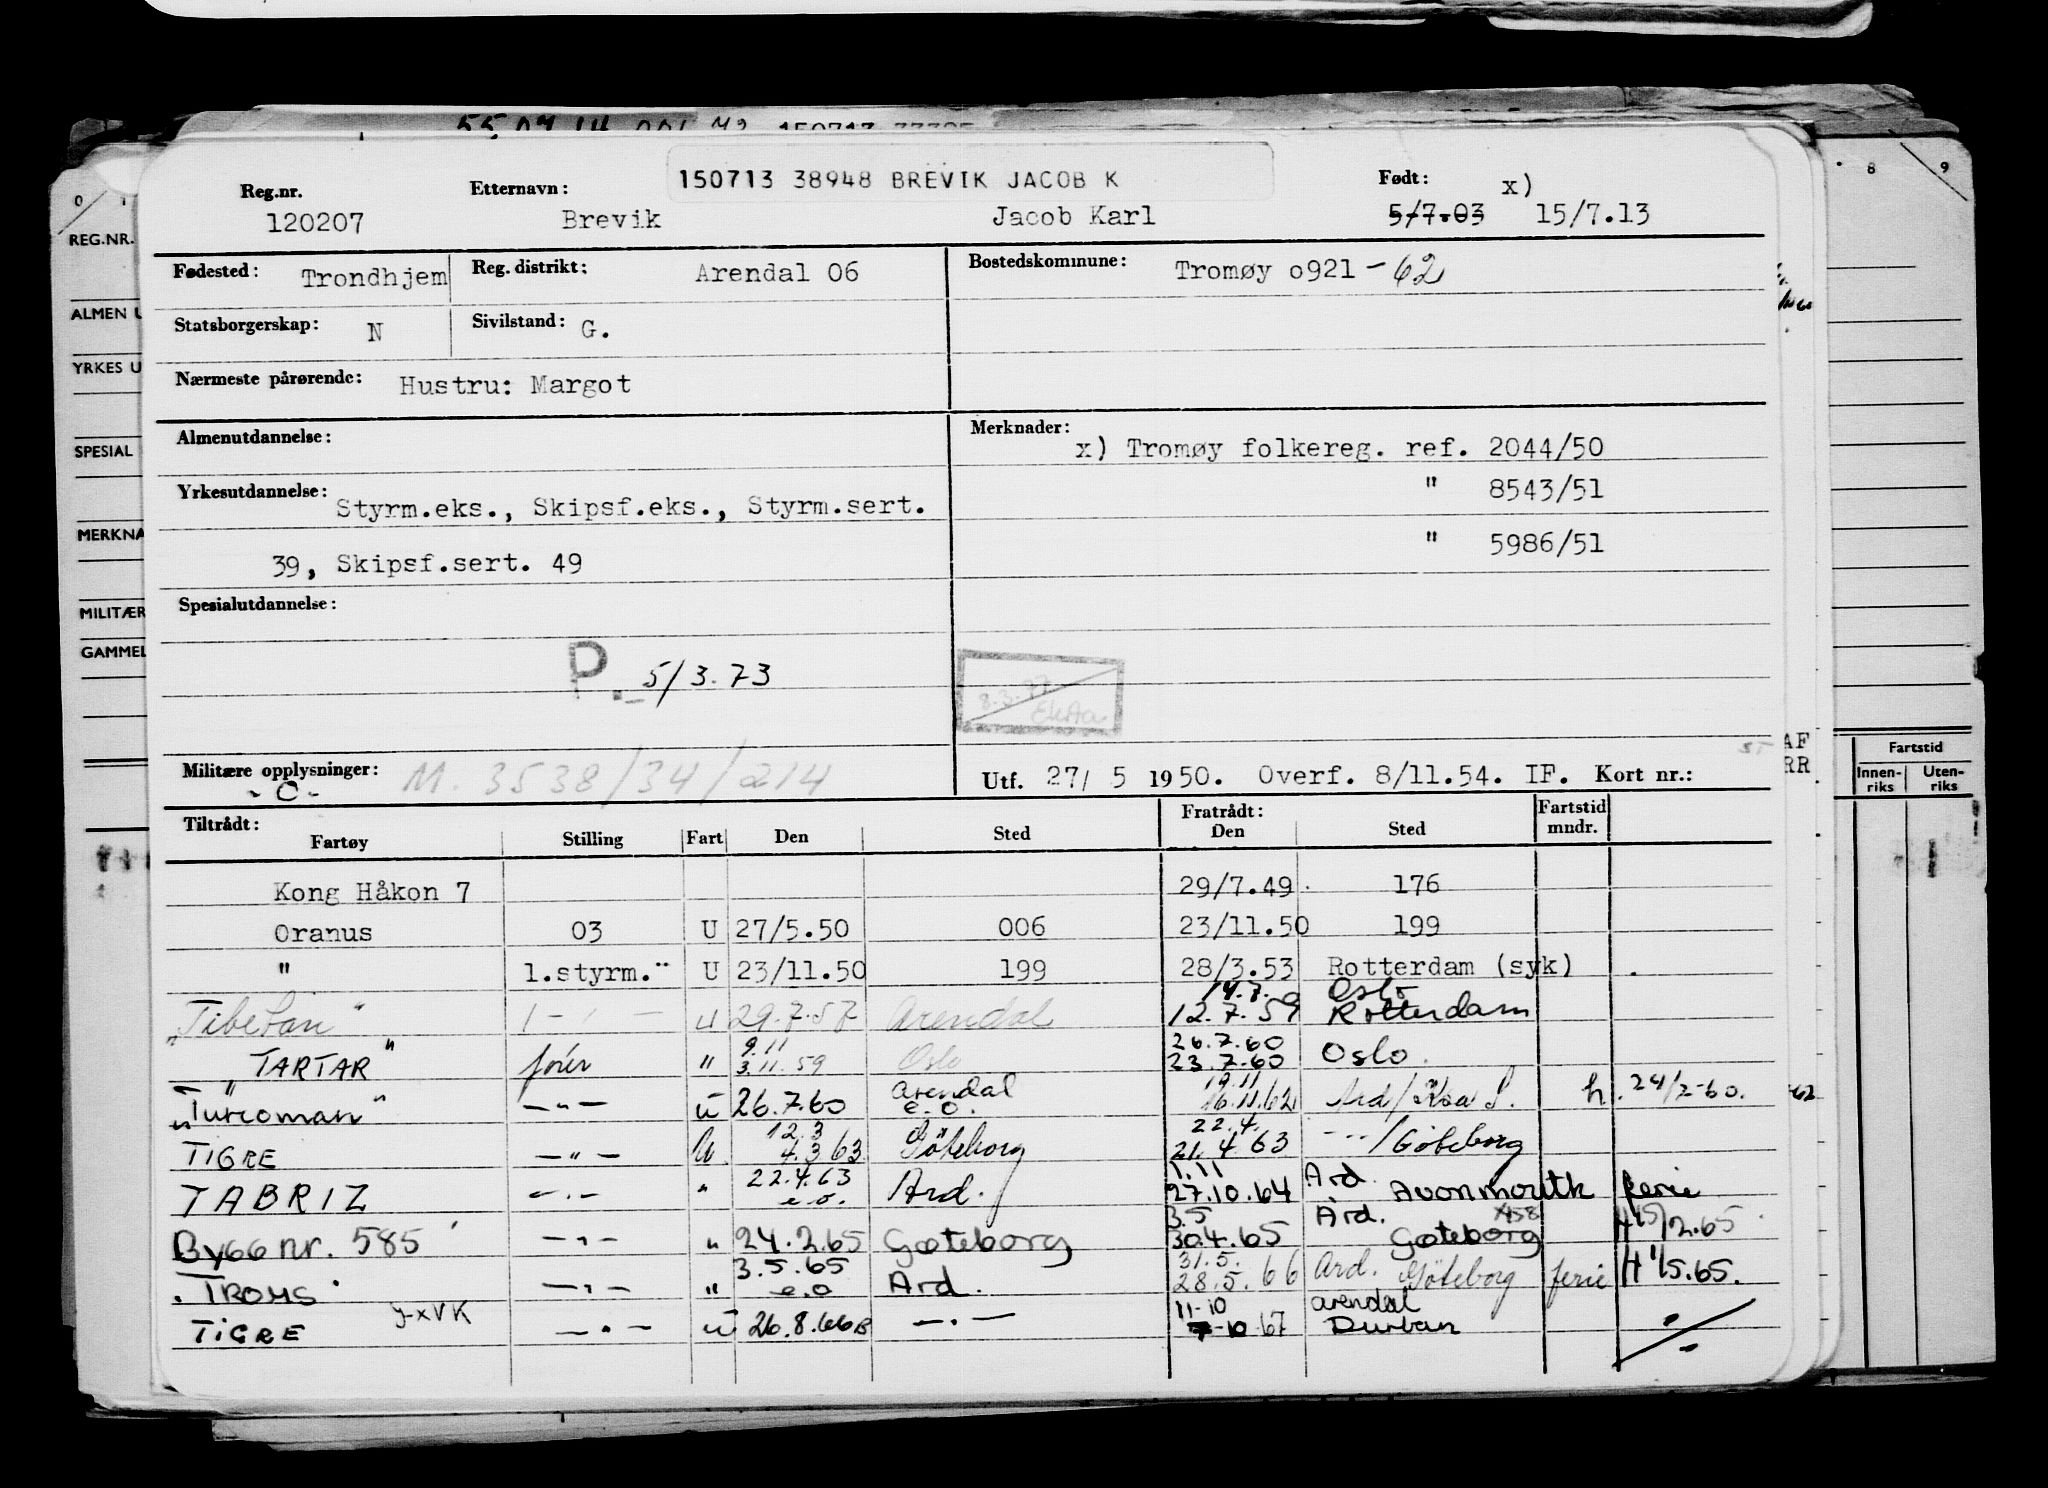 150713 38948 BREVIK JACOB K
Reg.nr. Etternavn: Født: x)
120207 Brevik Jacob Karl 5/7.03 15/7.13
Fødested: Trondhjem Reg. distrikt: Arendal 06 Bostedskommune: Tromøy o921-62
Statsborgerskap: N Sivilstand: G.
Nærmeste pårørende: Hustru: Margot
Almenutdannelse: Merknader:
x) Tromøy folkereg. ref. 2044/50
Yrkesutdannelse: Styrm.eks., Skipsf.eks., Styrm.sert. " 8543/51
39, Skipsf.sert. 49 " 5986/51
Spesialutdannelse:
P. 5/3.73
8.3.77
Militære opplysninger: M. 3538/34/214 Utf. 27/ 5 1950. Overf. 8/11.54. IF. Kort nr.:
-C-
Tiltrådt: Fratrådt: Fartstid
Fartøy Stilling Fart Den Sted Den Sted mndr.
Kong Håkon 7 29/7.49 176
Oranus 03 U 27/5.50 006 23/11.50 199
" 1.styrm." U 23/11.50 199 28/3.53 Rotterdam (syk)
14.7. Oslo
"Tibetan" 1 - " - U 29.7.57 Arendal 12.7.59 Rotterdam
9.11 26.7.60
"TARTAR" fører " 3.11.59 Oslo 23.7.60 Oslo
Arendal 19.11
"Turcoman" -"- U 26.7.60 e.o. 16.11.62 Ard/ h. 24/2-60.
12.3 22.4.
TIGRE -"- U 4.3 63 Göteborg 21.4 63 -"-/Göteborg
22.4.63 1.11 Ard.
TABRIZ -"- " e.o. Ard. 27.10.64 Avonmouth ferie
3.5 Ard.
Bygg nr. 585 -"- " 24.2.65 Gøteborg 30.4.65 Gøteborg H 15/2.65
3.5.65 31.5.
TROMS -"- " e.o Ard. 28.5.66 Ard. Göteborg ferie H 1/5.65.
JXVK 11-10 Arendal
TIGRE -"- U 26.8.66 -"- 7-10 67 Durban
REG.NR.
ALMEN U
YRKES U
SPESIAL
MERKNA
MILITÆR
GAMMEL
8 9
Fartstid
Innen-riks Uten-riks